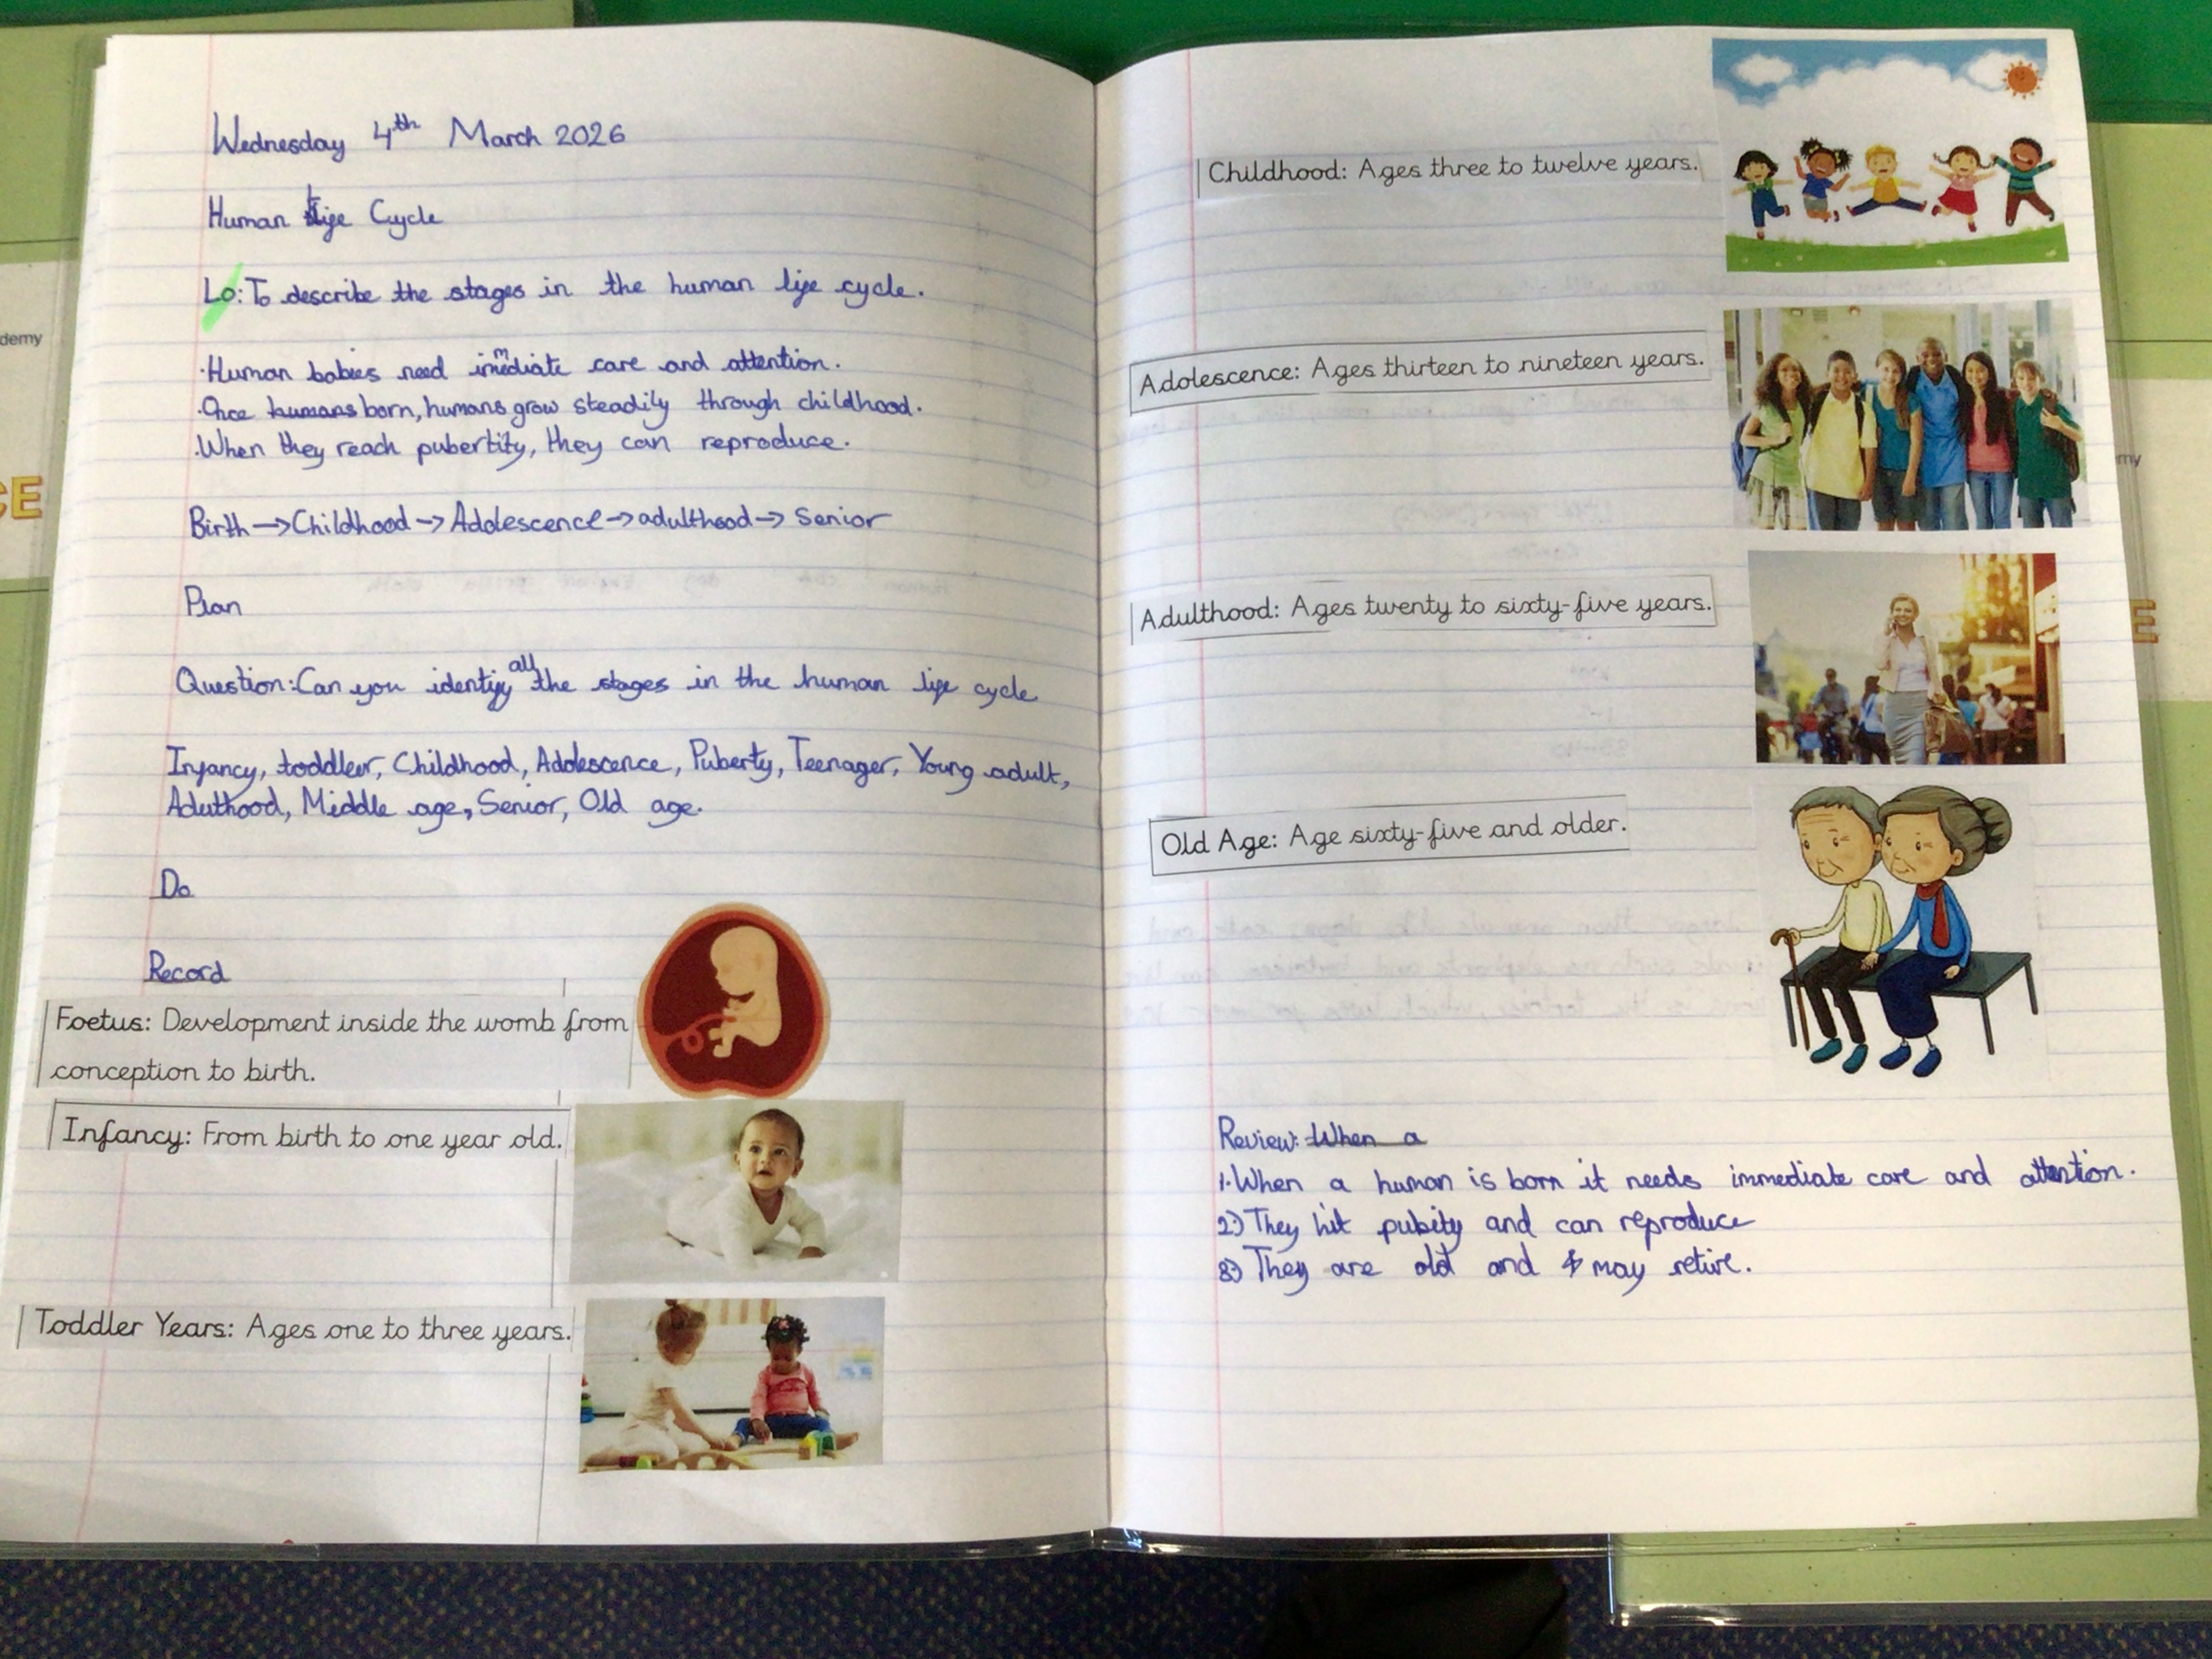 Wednesday 4th March 2026
Human Life Cycle
LO: To describe the stages in the human life cycle.
·Human babies need immediate care and attention.
·Once humans born, humans grow steadily through childhood.
·When they reach pubertity, they can reproduce.
Birth → Childhood → Adolescence → adulthood → Senior
Plan
Question: Can you identify all the stages in the human life cycle
Infancy, toddler, Childhood, Adolescence, Puberty, Teenager, Young adult,
Aduthood, Middle age, Senior, Old age.
Do
Record
Foetus: Development inside the womb from
conception to birth.
Infancy: From birth to one year old.
Toddler Years: Ages one to three years.
Childhood: Ages three to twelve years.
Adolescence: Ages thirteen to nineteen years.
Adulthood: Ages twenty to sixty-five years.
Old Age: Age sixty-five and older.
Review: When a
1. When a human is born it needs immediate care and attention.
2) They hit pubity and can reproduce
3) They are old and may retire.
demy
CE
my
E